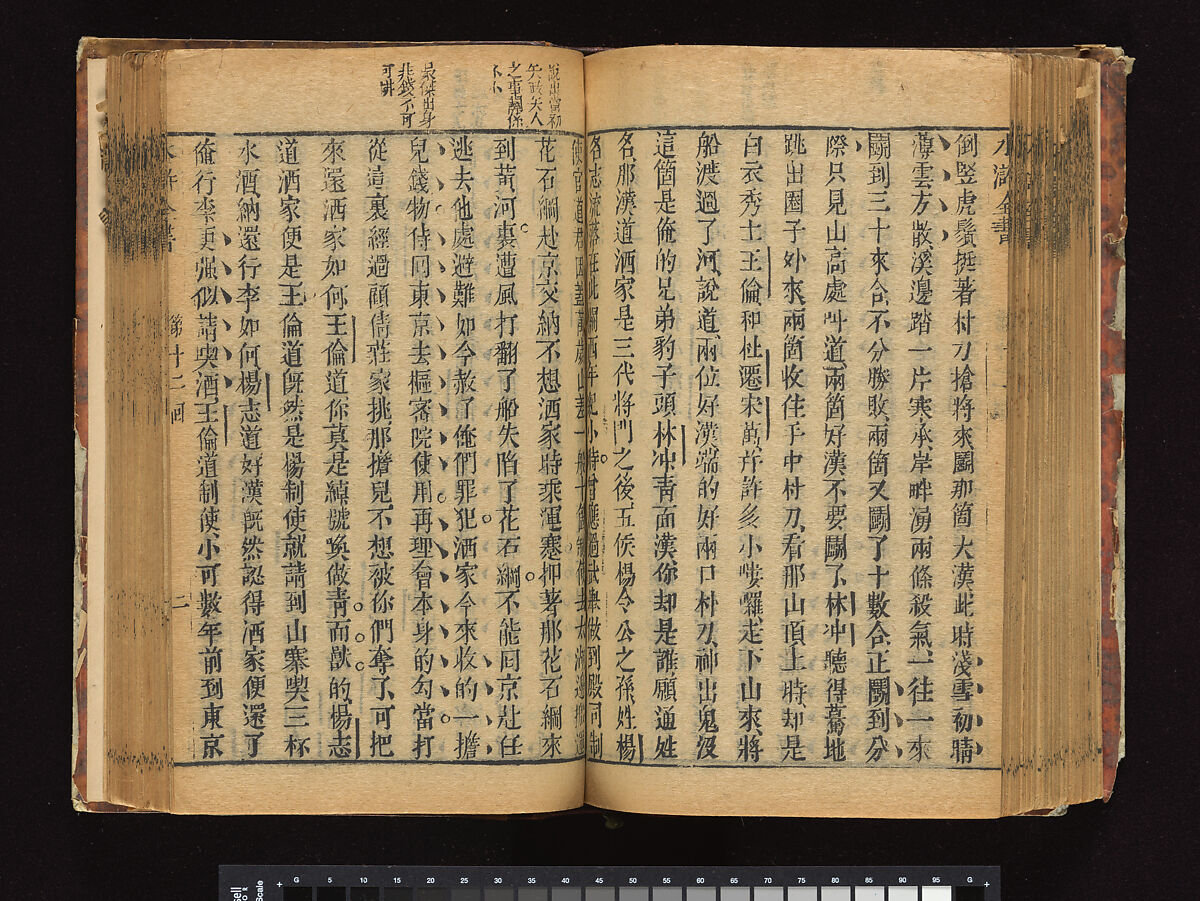 倒竪虎鬚挺着朴刀搶將來鬬那箇大漢此時淺雪初晴
薄雲方散溪邊踏一片寒氷岸畔湧兩條殺氣一往一來
鬬到三十來合不分勝敗兩箇又鬬了十數合正鬬到分
際只見山高處叫道兩箇好漢不要鬬了林冲聽得驀地
跳出圈子外來兩箇收住手中朴刀看那山頂上時却是
白衣秀士王倫和杜遷宋萬并許多小嘍囉走下山來將
船渡過了河說道兩位好漢端的好兩口朴刀神出鬼沒
這箇是俺的兄弟豹子頭林冲靑面漢你却是誰願通姓
名那漢道洒家是三代將門之後五侯楊令公之孫姓楊
名志流落在此關西年紀小時曾應過武舉做到殿司制
使官道君因蓋萬歲山差一般十箇制使去太湖邊搬運
花石綱赴京交納不想洒家時乖運蹇押着那花石綱來
到黃河裏遭風打翻了船失陷了花石綱不能囘京赴任
逃去他處避難如今赦了俺們罪犯洒家今來收的一擔
兒錢物待囘東京去樞密院使用再理會本身的勾當打
從這裏經過顧倩莊家挑那擔兒不想被你們奪了可把
來還洒家如何王倫道你莫是綽號喚做靑面獸的楊志
道洒家便是王倫道旣然是楊制使就請到山寨喫三杯
水酒納還行李如何楊志道好漢旣然認得洒家便還了
俺行李更强似請喫酒王倫道制使小可數年前到東京
水滸全書
第十二回
二
水滸全書
說出當初
之事關係
不小
豪傑出身
非錢不可
可嘆